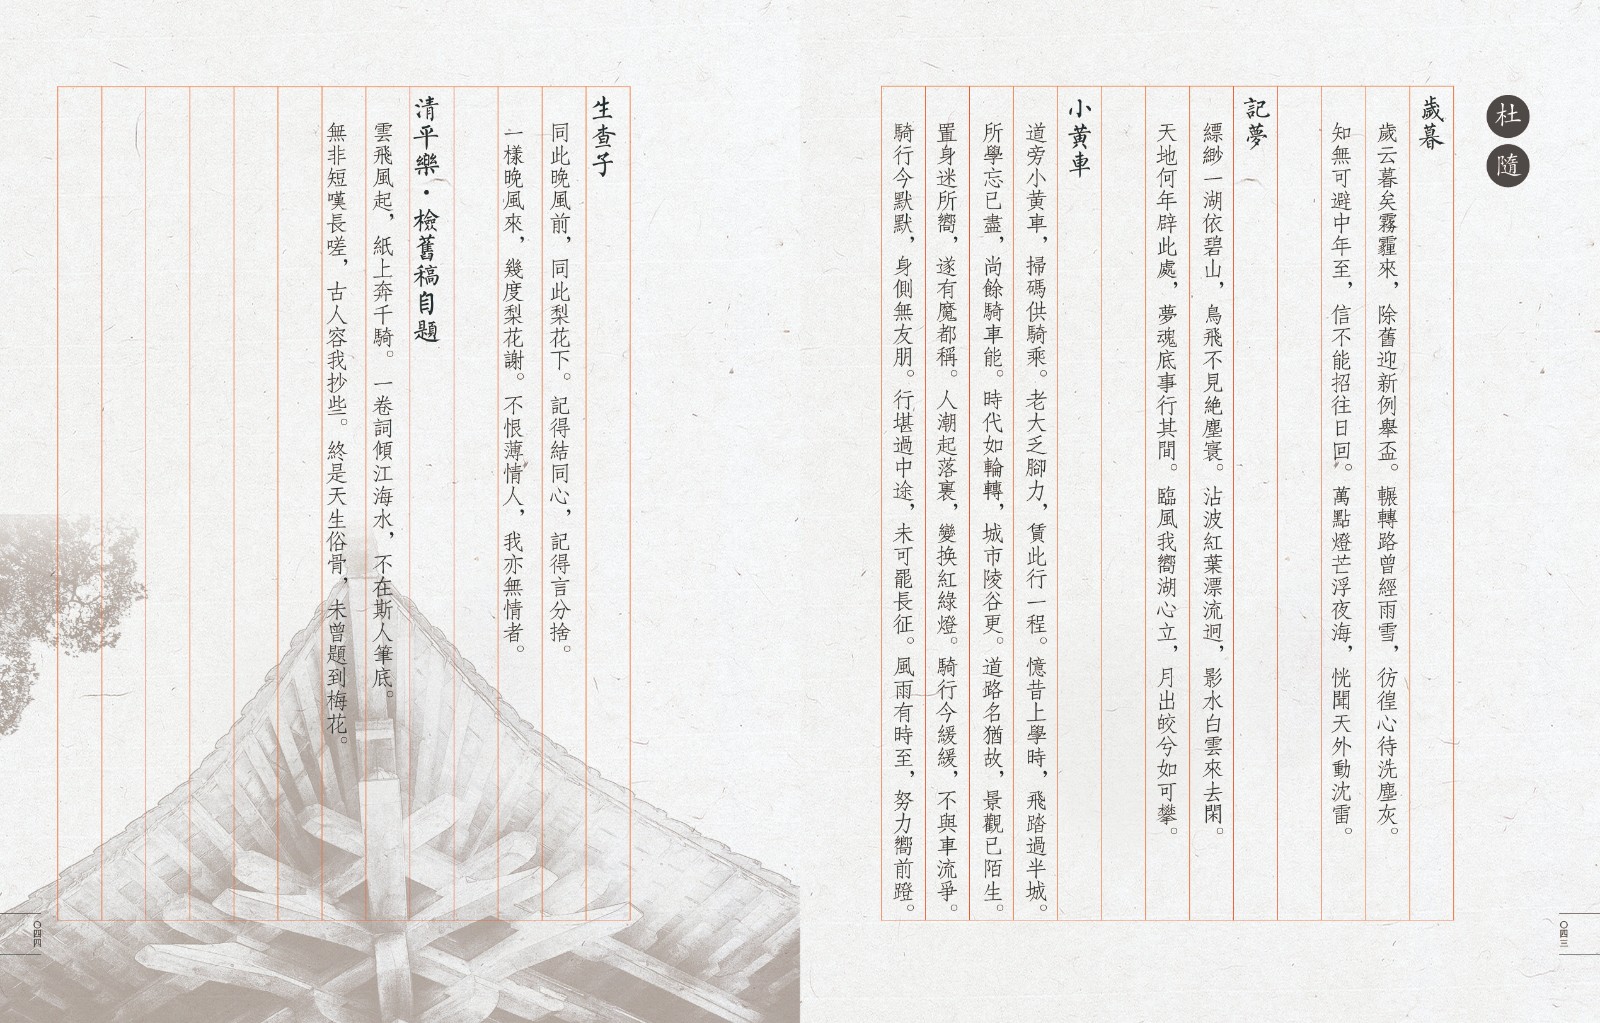 杜隨
歲暮
歲云暮矣霧霾來，除舊迎新例舉盃。輾轉路曾經雨雪，彷徨心待洗塵灰。
知無可避中年至，信不能招往日回。萬點燈芒浮夜海，恍聞天外動沈雷。
記夢
縹緲一湖依碧山，鳥飛不見絶塵寰。沾波紅葉漂流迥，影水白雲來去閑。
天地何年辟此處，夢魂底事行其間。臨風我嚮湖心立，月出皎兮如可攀。
小黃車
道旁小黃車，掃碼供騎乘。老大乏腳力，賃此行一程。憶昔上學時，飛踏過半城。
所學忘已盡，尚餘騎車能。時代如輪轉，城市陵谷更。道路名猶故，景觀已陌生。
置身迷所嚮，遂有魔都稱。人潮起落裏，變换紅綠燈。騎行今緩緩，不與車流爭。
騎行今默默，身側無友朋。行堪過中途，未可罷長征。風雨有時至，努力嚮前蹬。
〇四三
生查子
同此晚風前，同此梨花下。記得結同心，記得言分捨。
一樣晚風來，幾度梨花謝。不恨薄情人，我亦無情者。
清平樂·檢舊稿自題
雲飛風起，紙上奔千騎。一卷詞傾江海水，不在斯人筆底。
無非短嘆長嗟，古人容我抄些。終是天生俗骨，未曾題到梅花。
〇四四